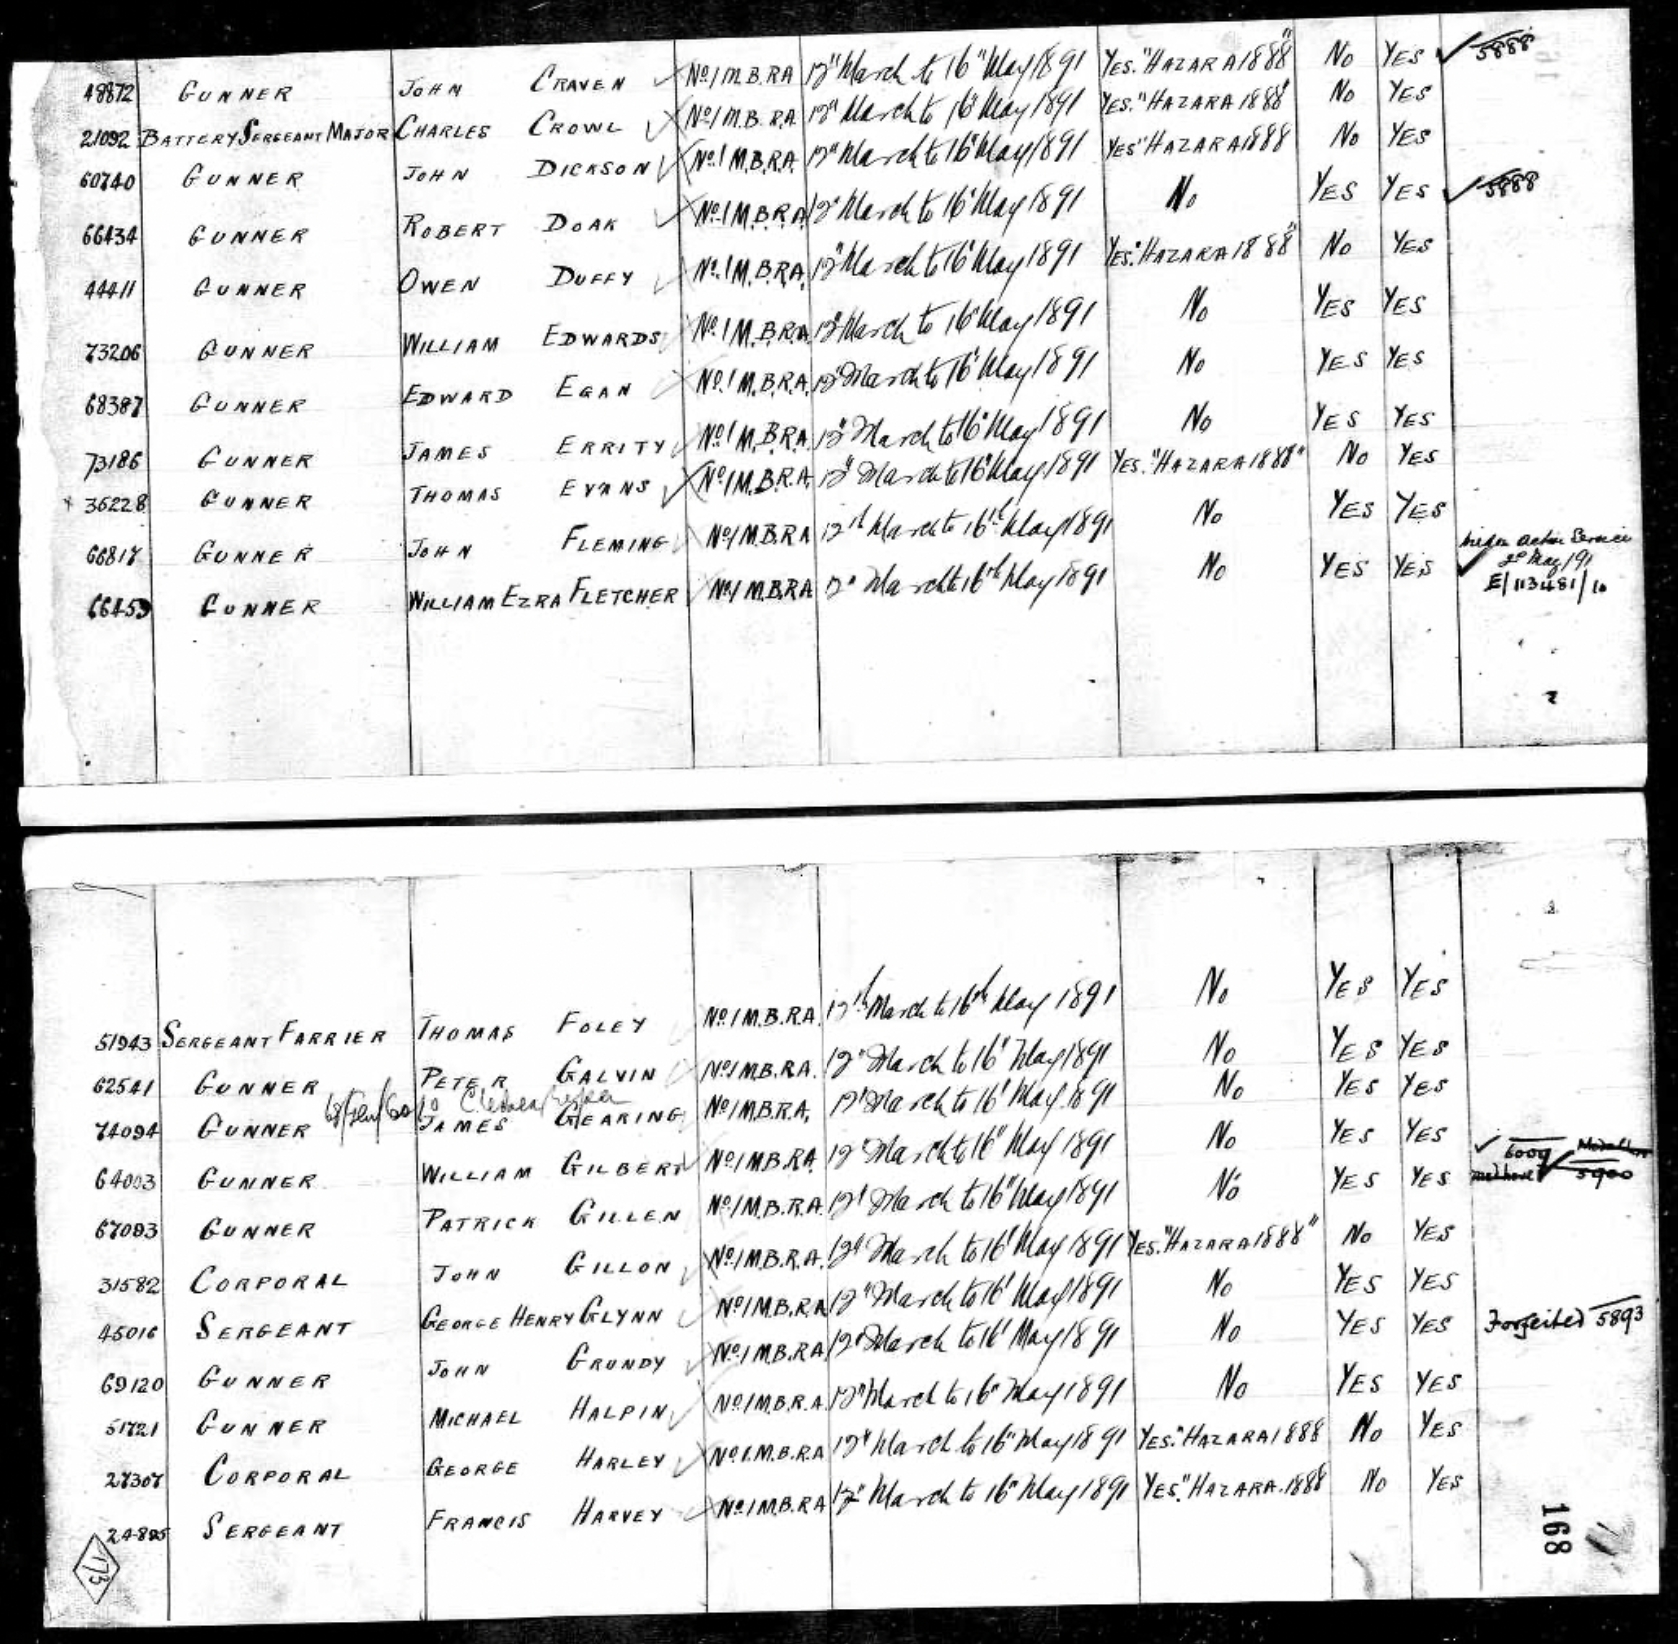 48872 GUNNER JOHN CRAVEN No 1 M.B.RA 12" March to 16" May 1891 YES. "HAZARA 1888" No YES 5888
21092 BATTERY SERGEANT MAJOR CHARLES CROWL No 1 M.B.R.A. 12" March to 16" May 1891 YES. "HAZARA 1888" No YES
60740 GUNNER JOHN DICKSON No 1 M.B.R.A. 12" March to 16" May 1891 YES "HAZARA 1888 No YES
66434 GUNNER ROBERT DOAK No 1 M.B.R.A 12" March to 16" May 1891 No YES YES 5888
44411 GUNNER OWEN DUFFY No 1 M.B.R.A. 12" March to 16" May 1891 YES. "HAZARA 1888" No YES
73206 GUNNER WILLIAM EDWARDS No 1 M.B.R.A 12" March to 16" May 1891 No YES YES
68387 GUNNER EDWARD EGAN No 1 M.B.R.A. 12" March to 16" May 1891 No YES YES
73186 GUNNER JAMES ERRITY No 1 M.B.R.A. 12" March to 16" May 1891 No YES YES
36228 GUNNER THOMAS EVANS No 1 M.B.R.A. 12" March to 16" May 1891 YES. "HAZARA 1888" No YES
66817 GUNNER JOHN FLEMING No 1 M.B.RA 12th March to 16th May 1891 No YES YES
66453 GUNNER WILLIAM EZRA FLETCHER No 1 M.B.RA 12" March to 16th May 1891 No YES YES
Service
May/91
E/113481/10
51943 SERGEANT FARRIER THOMAS FOLEY No 1 M.B.R.A. 12th March to 16th May 1891 No YES YES
62541 GUNNER PETER GALVIN No 1 M.B.R.A. 12" March to 16" May 1891 No YES YES
74094 GUNNER JAMES GEARING No 1 M.B.R.A. 12" March to 16" May 1891 No YES YES
64003 GUNNER WILLIAM GILBERT No 1 M.B.R.A 12" March to 16" May 1891 No YES YES 6009
67093 GUNNER PATRICK GILLEN No 1 M.B.R.A. 12" March to 16" May 1891 No YES YES 5900
31582 CORPORAL JOHN GILLON No 1 M.B.R.A. 12" March to 16" May 1891 YES. "HAZARA 1888" No YES
45016 SERGEANT GEORGE HENRY GLYNN No 1 M.B.R.A 12" March to 16" May 1891 No YES YES
69120 GUNNER JOHN GRUNDY No 1 M.B.R.A 12" March to 16" May 1891 No YES YES Forfeited 5893
51721 GUNNER MICHAEL HALPIN No 1 M.B.R.A 12" March to 16" May 1891 No YES YES
27307 CORPORAL GEORGE HARLEY No 1. M.B.R.A 12" March to 16" May 1891 YES. "HAZARA 1888 No YES
SERGEANT FRANCIS HARVEY No 1 M.B.R.A 12" March to 16" May 1891 YES. "HAZARA. 1888 No YES
173
168